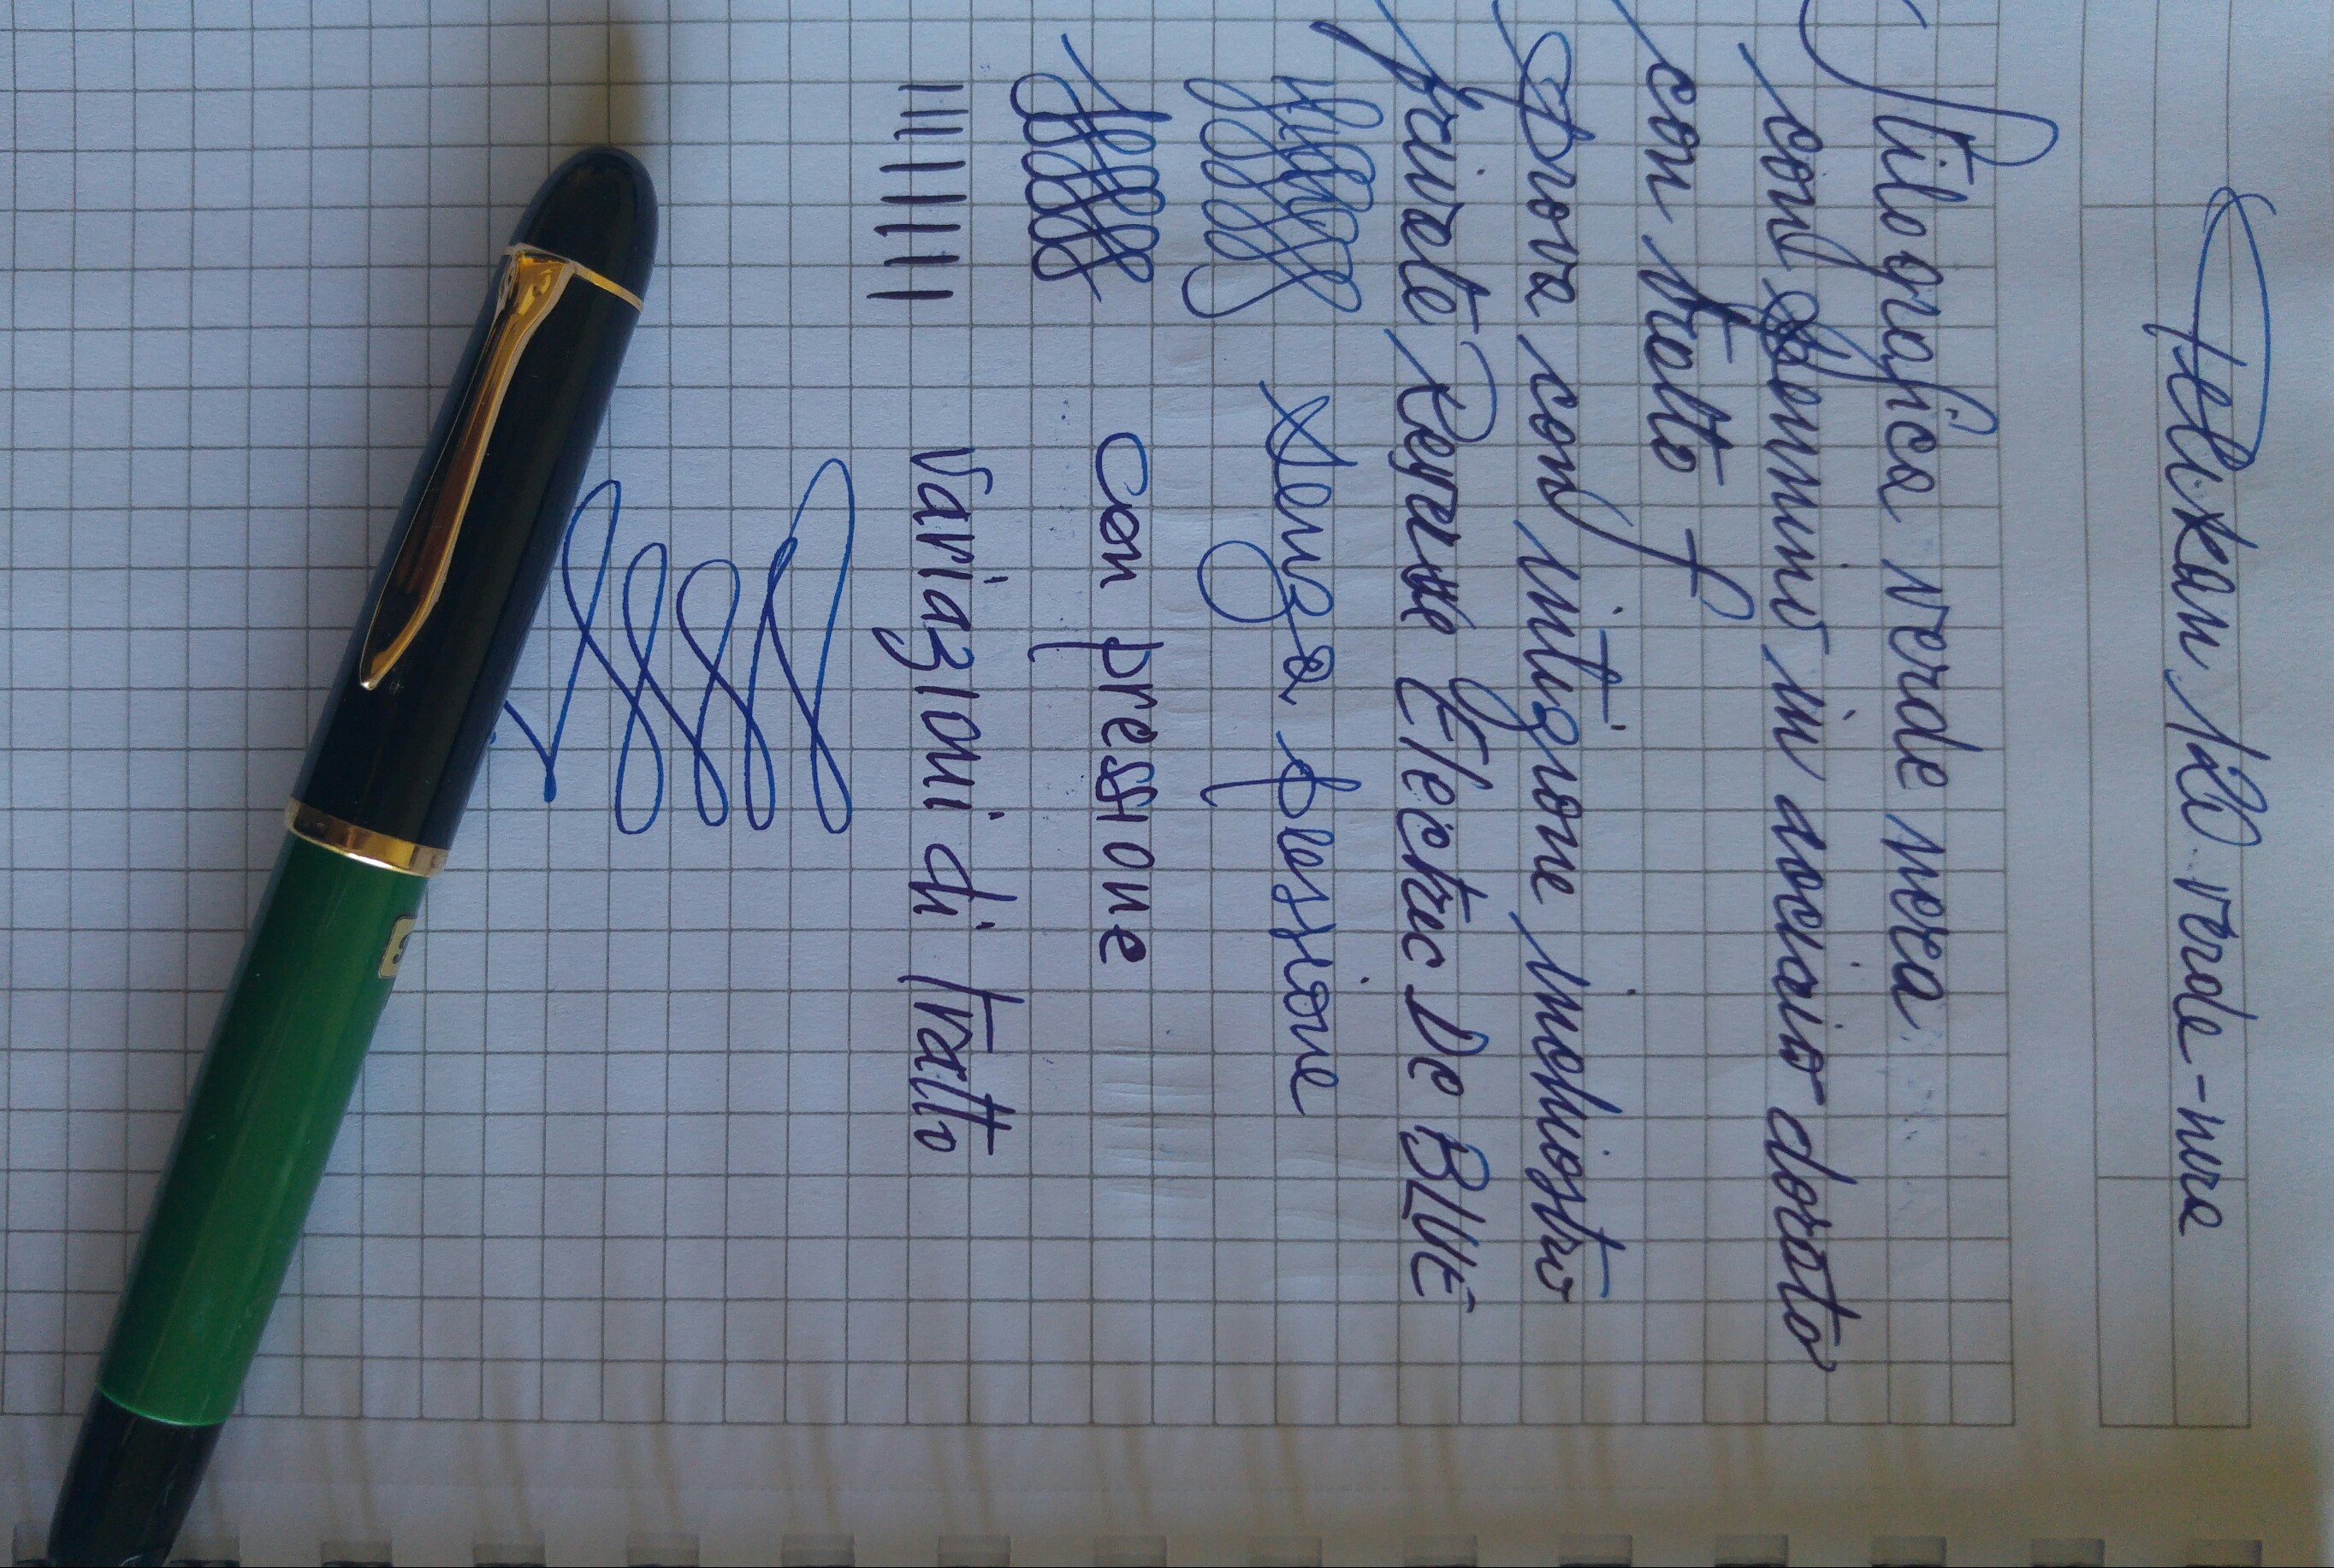 Pelikan 120 verde-nera
Stilografica verde nera
con pennino in acciaio dorato
con tratto F
Prova con intinzione inchiostro
Private Reserve Electric Dc BLUE
senza pressione
con pressione
Variazioni di tratto